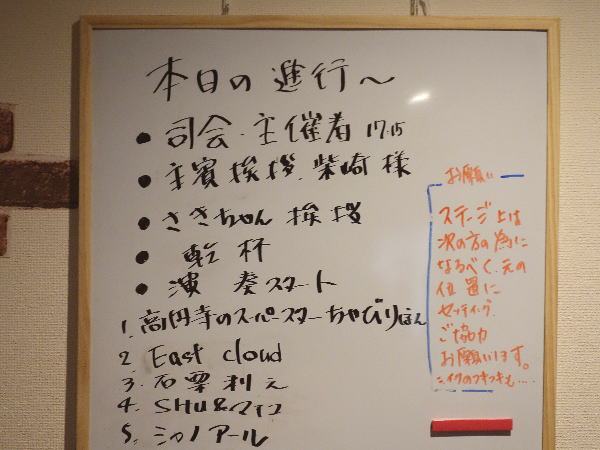 本日の進行～
● 司会・主催者 17:15
● 主賓挨拶. 柴崎様
● さきちゃん 挨拶
● 乾杯
● 演奏スタート
1. 高円寺のスーパースターちゃびりほん
2 East cloud
3. 石粟利え
4. SHU&マイコ
5. シカノアール
お願い
ステージ上は
次の方の為に
なるべく、元の
位置に
セッティング
ご協力
お願いします。